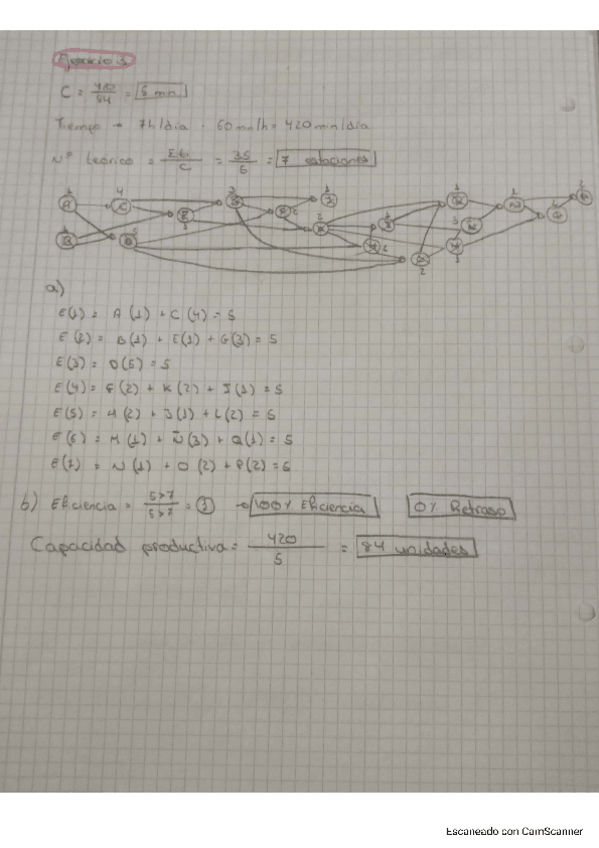 Ejercicio 3
C = 420/84 = 5 min
Tiempo → 7h/dia · 60 min/h = 420 min/dia
Nº teorico = Σti/C = 35/5 = 7 estaciones
a)
E(1) = A (1) + C (4) = 5
E (2) = B(1) + E(1) + G(3) = 5
E(3) = D(5) = 5
E(4) = F(2) + K(2) + I(1) = 5
E(5) = H(2) + J(1) + L(2) = 5
E(6) = M(1) + Ñ(3) + Q(1) = 5
E(7) = N(1) + O(2) + P(2) = 5
b) Eficiencia = 5×7/5×7 = 1 → 100% Eficiencia 0% Retraso
Capacidad productiva = 420/5 = 84 unidades
Escaneado con CamScanner